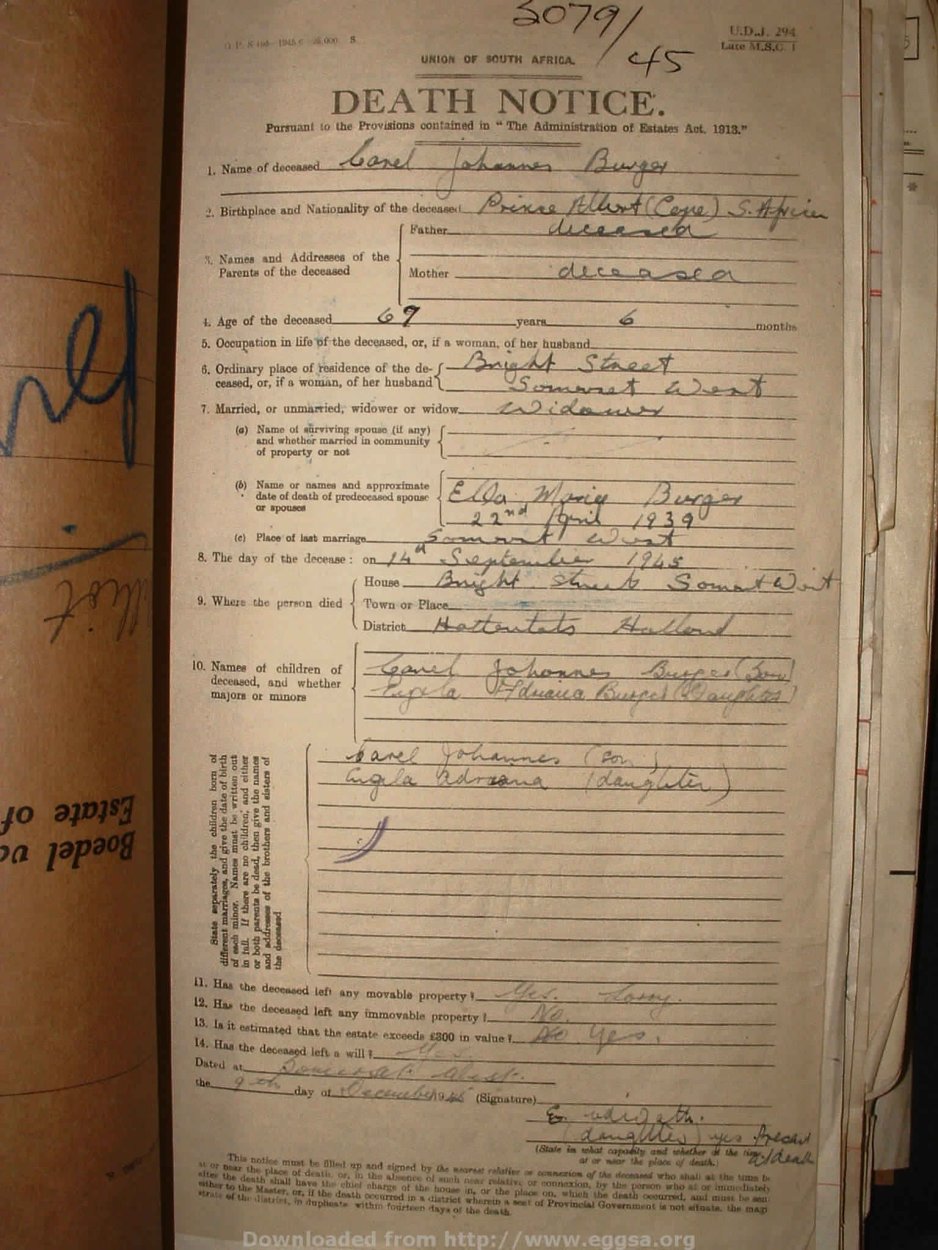 3079/45
U.D.J. 294
Late M.S.C. 1
UNION OF SOUTH AFRICA.
DEATH NOTICE.
Pursuant to the Provisions contained in "The Administration of Estates Act, 1913."
1. Name of deceased Carel Johannes Burger
2. Birthplace and Nationality of the deceased Prince Albert (Cape) S. African
3. Names and Addresses of the Parents of the deceased
Father deceased
Mother deceased
4. Age of the deceased 67 years 6 months
5. Occupation in life of the deceased, or, if a woman, of her husband
6. Ordinary place of residence of the de- Bright Street
ceased, or, if a woman, of her husband Somerset West
7. Married, or unmarried, widower or widow Widower
(a) Name of surviving spouse (if any)
and whether married in community
of property or not
(b) Name or names and approximate Ella Maria Burger
date of death of predeceased spouse 22nd April 1939
or spouses
(c) Place of last marriage Somerset West
8. The day of the decease: on 14th September 1945
9. Where the person died
House Bright Street Somerset West
Town or Place
District Hottentots Holland
10. Names of children of
deceased, and whether
majors or minors
Carel Johannes Burger (Son)
Engela Adriana Burger (Daughter)
State separately the children born of
different marriages, and give the date of birth
of each minor. Names must be written out
in full. If there are no children, and either
or both parents be dead, then give the names
and addresses of the brothers and sisters of
the deceased
Carel Johannes (son)
Engela Adriana (daughter)
11. Has the deceased left any movable property? Yes. Lorry.
12. Has the deceased left any immovable property? No.
13. Is it estimated that the estate exceeds £300 in value? No Yes.
14. Has the deceased left a will? Yes
Dated at Somerset West.
the 9th day of December 1945 (Signature)
(daughter) yes Present
at death
(State in what capacity and whether at the time
at or near the place of death.)
This notice must be filled up and signed by the nearest relative or connexion of the deceased who shall at the time be
at or near the place of death, or, in the absence of such near relative, or connexion, by the person who at or immediately
after the death shall have the chief charge of the house in, or the place on, which the death occurred, and must be sent
either to the Master, or, if the death occurred in a district wherein a seat of Provincial Government is not situate, the magi
strate of the district, in duplicate within fourteen days of the death.
Estate of
Boedel
Downloaded from http://www.eggsa.org